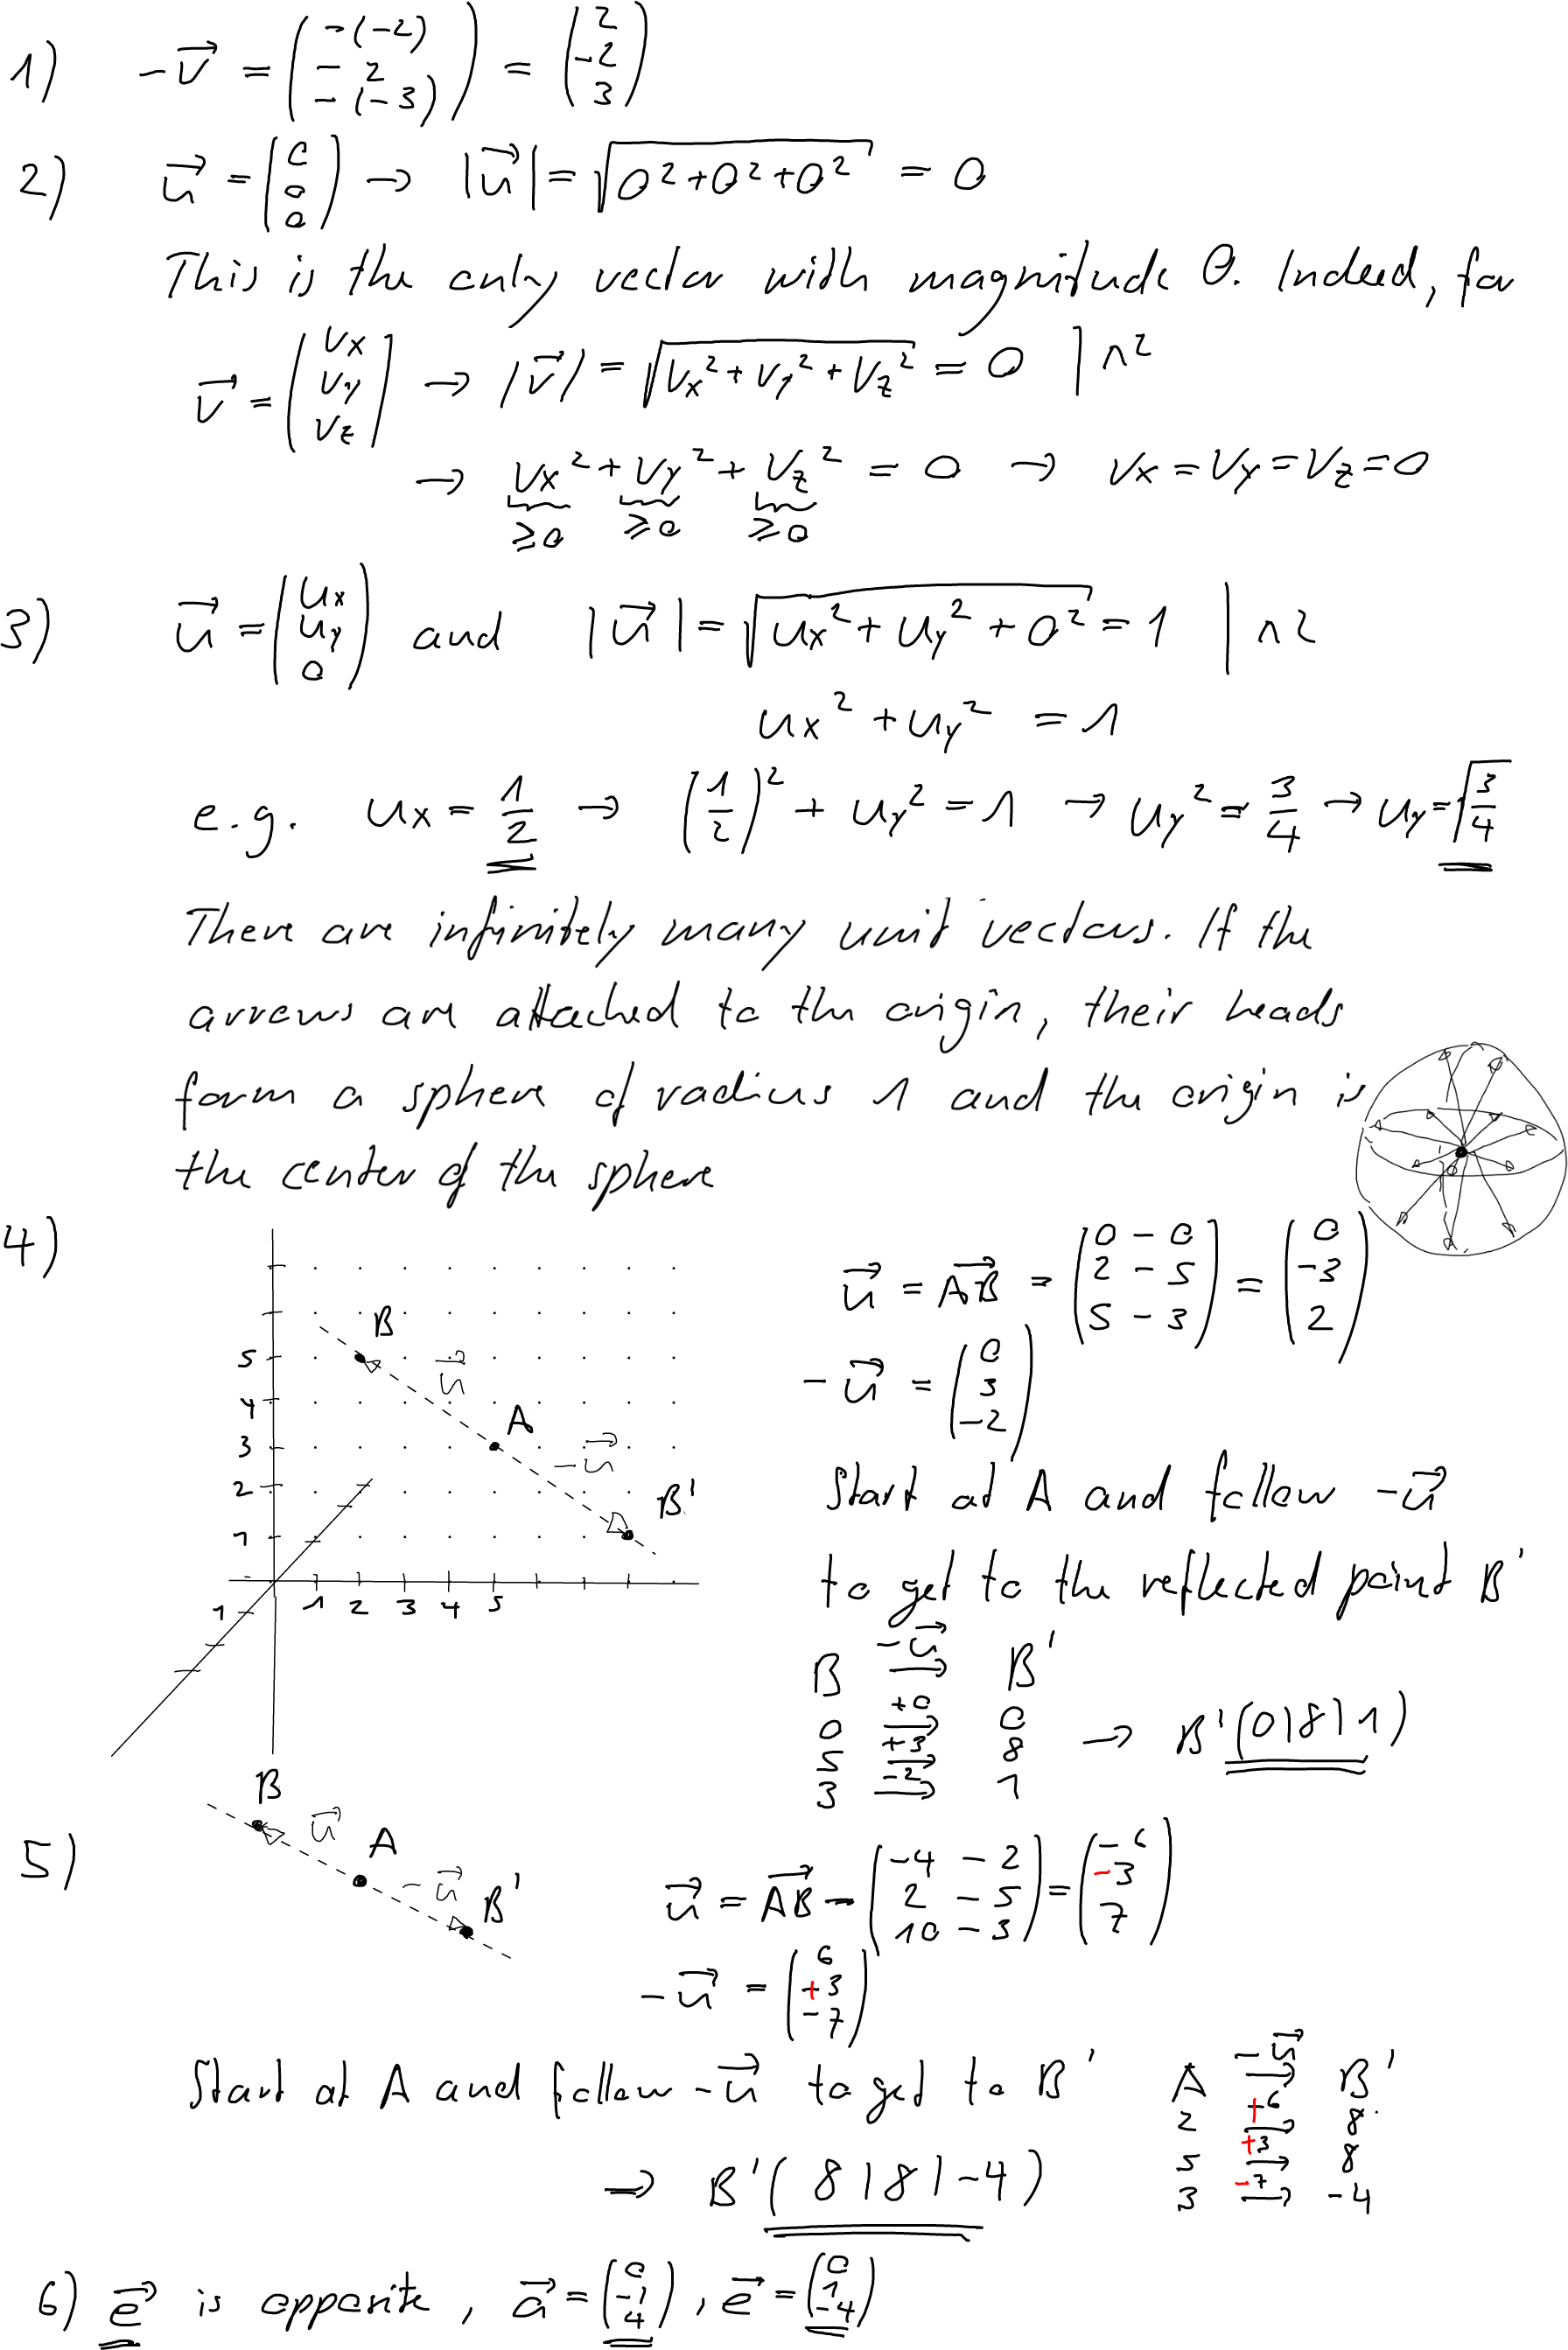 1) -v⃗ = (-(-2) / -2 / -(-3)) = (2 / -2 / 3)
2) u⃗ = (0 / 0 / 0) → |u⃗| = √(0² + 0² + 0²) = 0
This is the only vector with magnitude 0. Indeed, for
v⃗ = (vx / vy / vz) → |v⃗| = √(vx² + vy² + vz²) = 0 | ^2
→ vx² + vy² + vz² = 0 → vx = vy = vz = 0
≥0 ≥0 ≥0
3) u⃗ = (ux / uy / 0) and |u⃗| = √(ux² + uy² + 0²) = 1 | ^2
ux² + uy² = 1
e.g. ux = 1/2 → (1/2)² + uy² = 1 → uy² = 3/4 → uy = √(3/4)
There are infinitely many unit vectors. If the
arrows are attached to the origin, their heads
form a sphere of radius 1 and the origin is
the center of the sphere
4) u⃗ = AB⃗ = (0 - 0 / 2 - 5 / 5 - 3) = (0 / -3 / 2)
-u⃗ = (0 / 3 / -2)
B
u⃗
A
-u⃗
B'
5
4
3
2
1
1 2 3 4 5
1
Start at A and follow -u⃗
to get to the reflected point B'
B -u⃗→ B'
0 +0→ 0
5 +3→ 8 → B'(0|8|1)
3 -2→ 1
5) B
u⃗
A
-u⃗
B'
u⃗ = AB⃗ - (-4 - 2 / 2 - 5 / 10 - 3) = (-6 / -3 / 7)
-u⃗ = (6 / +3 / -7)
Start at A and follow -u⃗ to get to B'
A -u⃗→ B'
2 +6→ 8
5 +3→ 8
3 -7→ -4
→ B'(8|8|-4)
6) e⃗ is opposite, a⃗ = (0 / -1 / 4), e⃗ = (0 / 1 / -4)